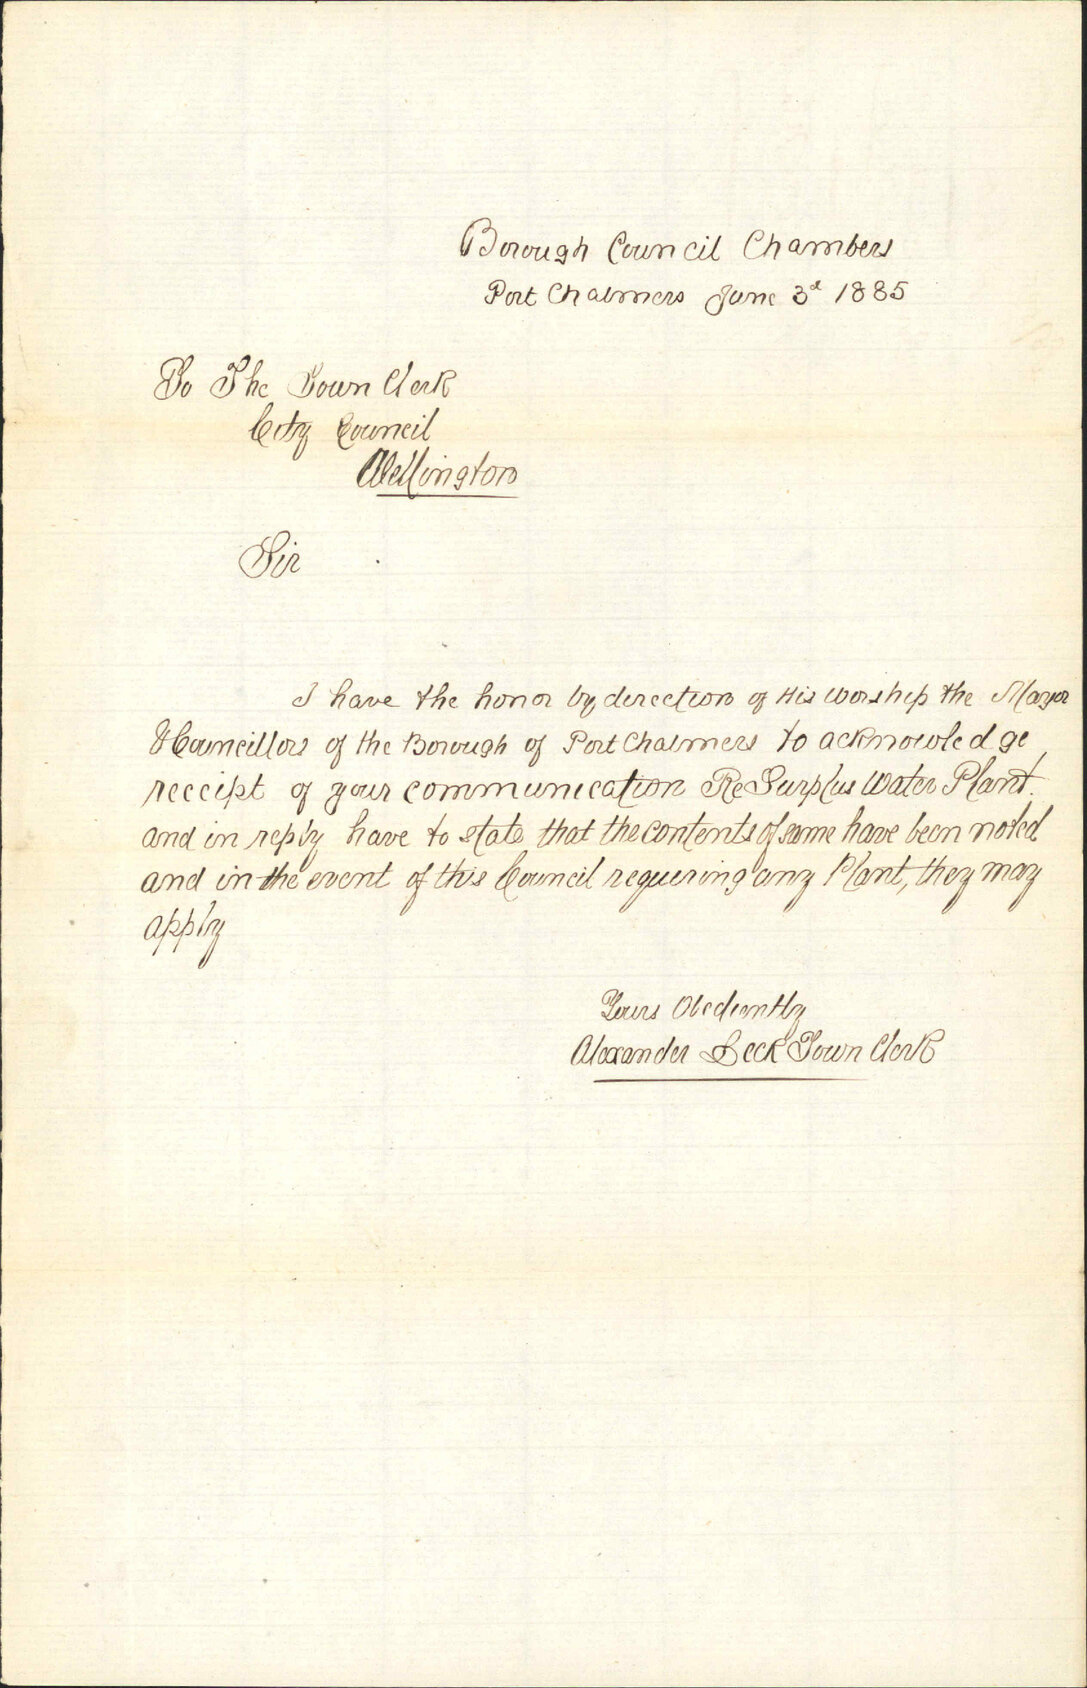 Borough Council Chambers
Port Chalmers June 3d 1885
To The Town Clerk
City Council
Wellington
Sir
I have the honor by direction of His Worship the Mayor
& Councillors of the Borough of Port Chalmers to acknowledge
receipt of your communication Re Surplus Water Plant.
and in reply have to state that the contents of same have been noted
and in the event of this Council requiering any Plant, they may
apply
Yours Obediently
Alexander Leck Town Clerk